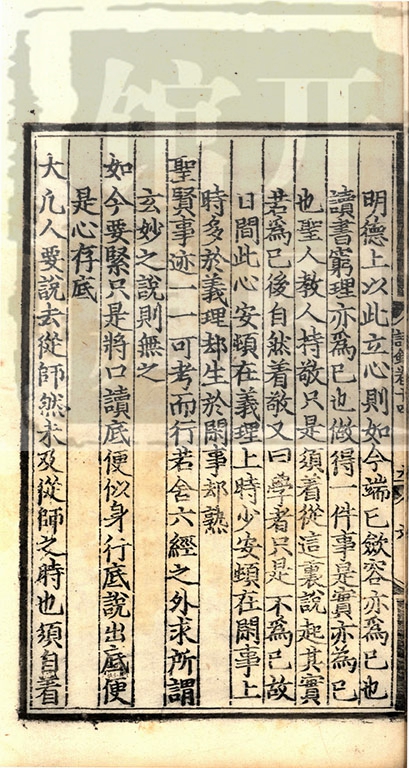 明德上以此立心則如今端已斂容亦爲已也
讀書窮理亦爲已也做得一件事是實亦為已
也聖人教人持敬只是須着從這裏說起其實
若為已後自然着敬又曰學者只是不為已故
日間此心安頓在義理上時少安頓在閑事上
時多於義理却生於閑事却熟
聖賢事迹一一可考而行若舍六經之外求所謂
玄妙之說則無之
如今要緊只是將口讀底便似身行底說出底便
是心存底
大凡人要說去從師然未及從師之時也須自着